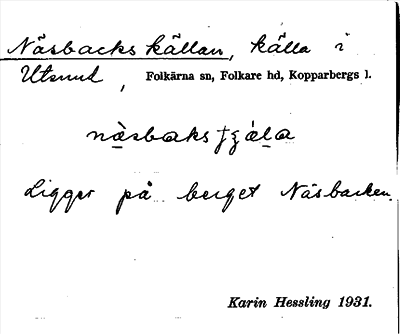 Näsbackskällan, källa i
Utsund, Folkärna sn, Folkare hd, Kopparbergs l.
Ligger på berget Näsbacken.
Karin Hessling 1931.